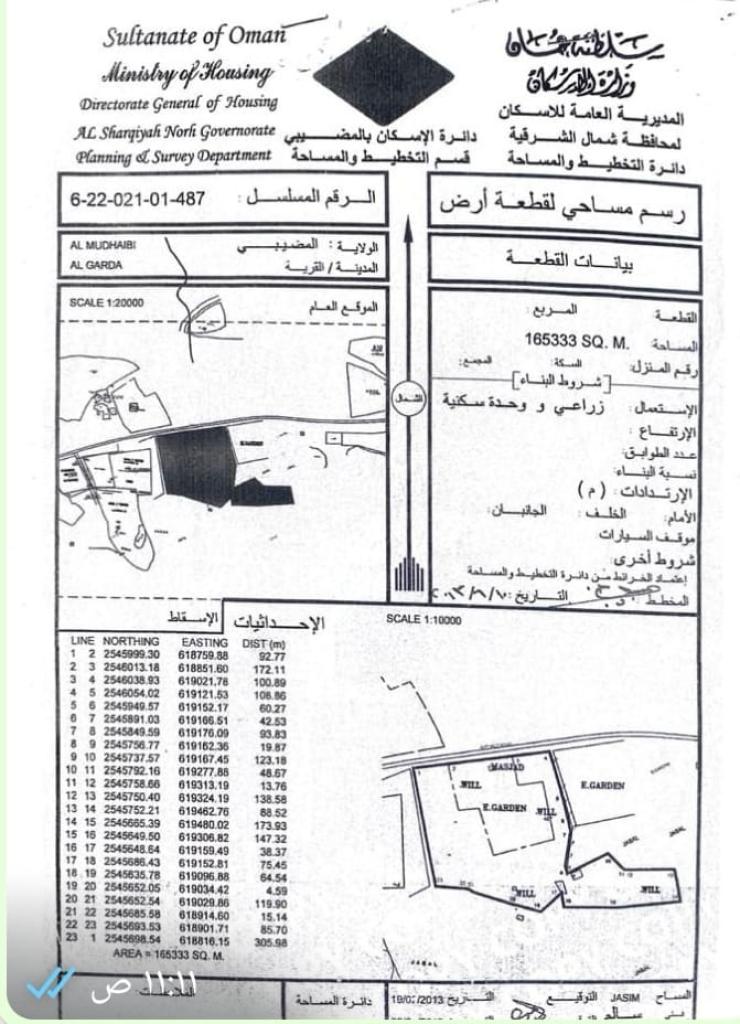 Sultanate of Oman
Ministry of Housing
Directorate General of Housing
AL Sharqiyah Norh Governorate
Planning & Survey Department
سلطنة عمان
وزارة الإسكان
المديرية العامة للاسكان
لمحافظة شمال الشرقية
دائرة التخطيط والمساحة
دائرة الإسكان بالمضيبي
قسم التخطيط والمساحة
6-22-021-01-487 الرقم المسلسل :
رسم مساحي لقطعة أرض
AL MUDHAIBI الولاية : المضيبي
AL GARDA المدينة / القرية
بيانات القطعة
SCALE 1:20000 الموقع العام
E.GARDEN
الشمال
القطعة المربع :
المساحة 165333 SQ. M.
رقم المنزل: السكة: المجمع:
[شروط البناء]
الإستعمال: زراعي و وحدة سكنية
الإرتفاع :
عدد الطوابق:
نسبة البناء:
الإرتدادات : ( م )
الأمام: الخلف : الجانبان:
موقف السيارات
شروط أخرى:
إعتماد الخرائط من دائرة التخطيط والمساحة
المخطط : التاريخ:
الإحداثيات الإسقاط
LINE NORTHING EASTING DIST (m)
1 2 2545999.30 618759.88 92.77
2 3 2546013.18 618851.60 172.11
3 4 2546038.93 619021.78 100.89
4 5 2546054.02 619121.53 108.86
5 6 2545949.57 619152.17 60.27
6 7 2545891.03 619166.51 42.53
7 8 2545849.59 619176.09 93.83
8 9 2545756.77 619162.36 19.87
9 10 2545737.57 619167.45 123.18
10 11 2545792.16 619277.88 48.67
11 12 2545758.66 619313.19 13.76
12 13 2545750.40 619324.19 138.58
13 14 2545752.21 619462.76 88.52
14 15 2545665.39 619480.02 173.93
15 16 2545649.50 619306.82 147.32
16 17 2545648.64 619159.49 38.37
17 18 2545686.43 619152.81 75.45
18 19 2545635.78 619096.88 64.54
19 20 2545652.05 619034.42 4.59
20 21 2545652.54 619029.86 119.90
21 22 2545685.58 618914.60 15.14
22 23 2545693.53 618901.71 85.70
23 1 2545698.54 618816.15 305.98
AREA = 165333 SQ. M.
SCALE 1:10000
MASJAD
WILL
E.GARDEN
WILL
E.GARDEN
JABAL
JABAL
WILL
WILL
JABAL
JABAL
الملاحظات:
دائرة المساحة
التاريخ 19/02/2013 التوقيع JASIM المساح
١١:١١ ص